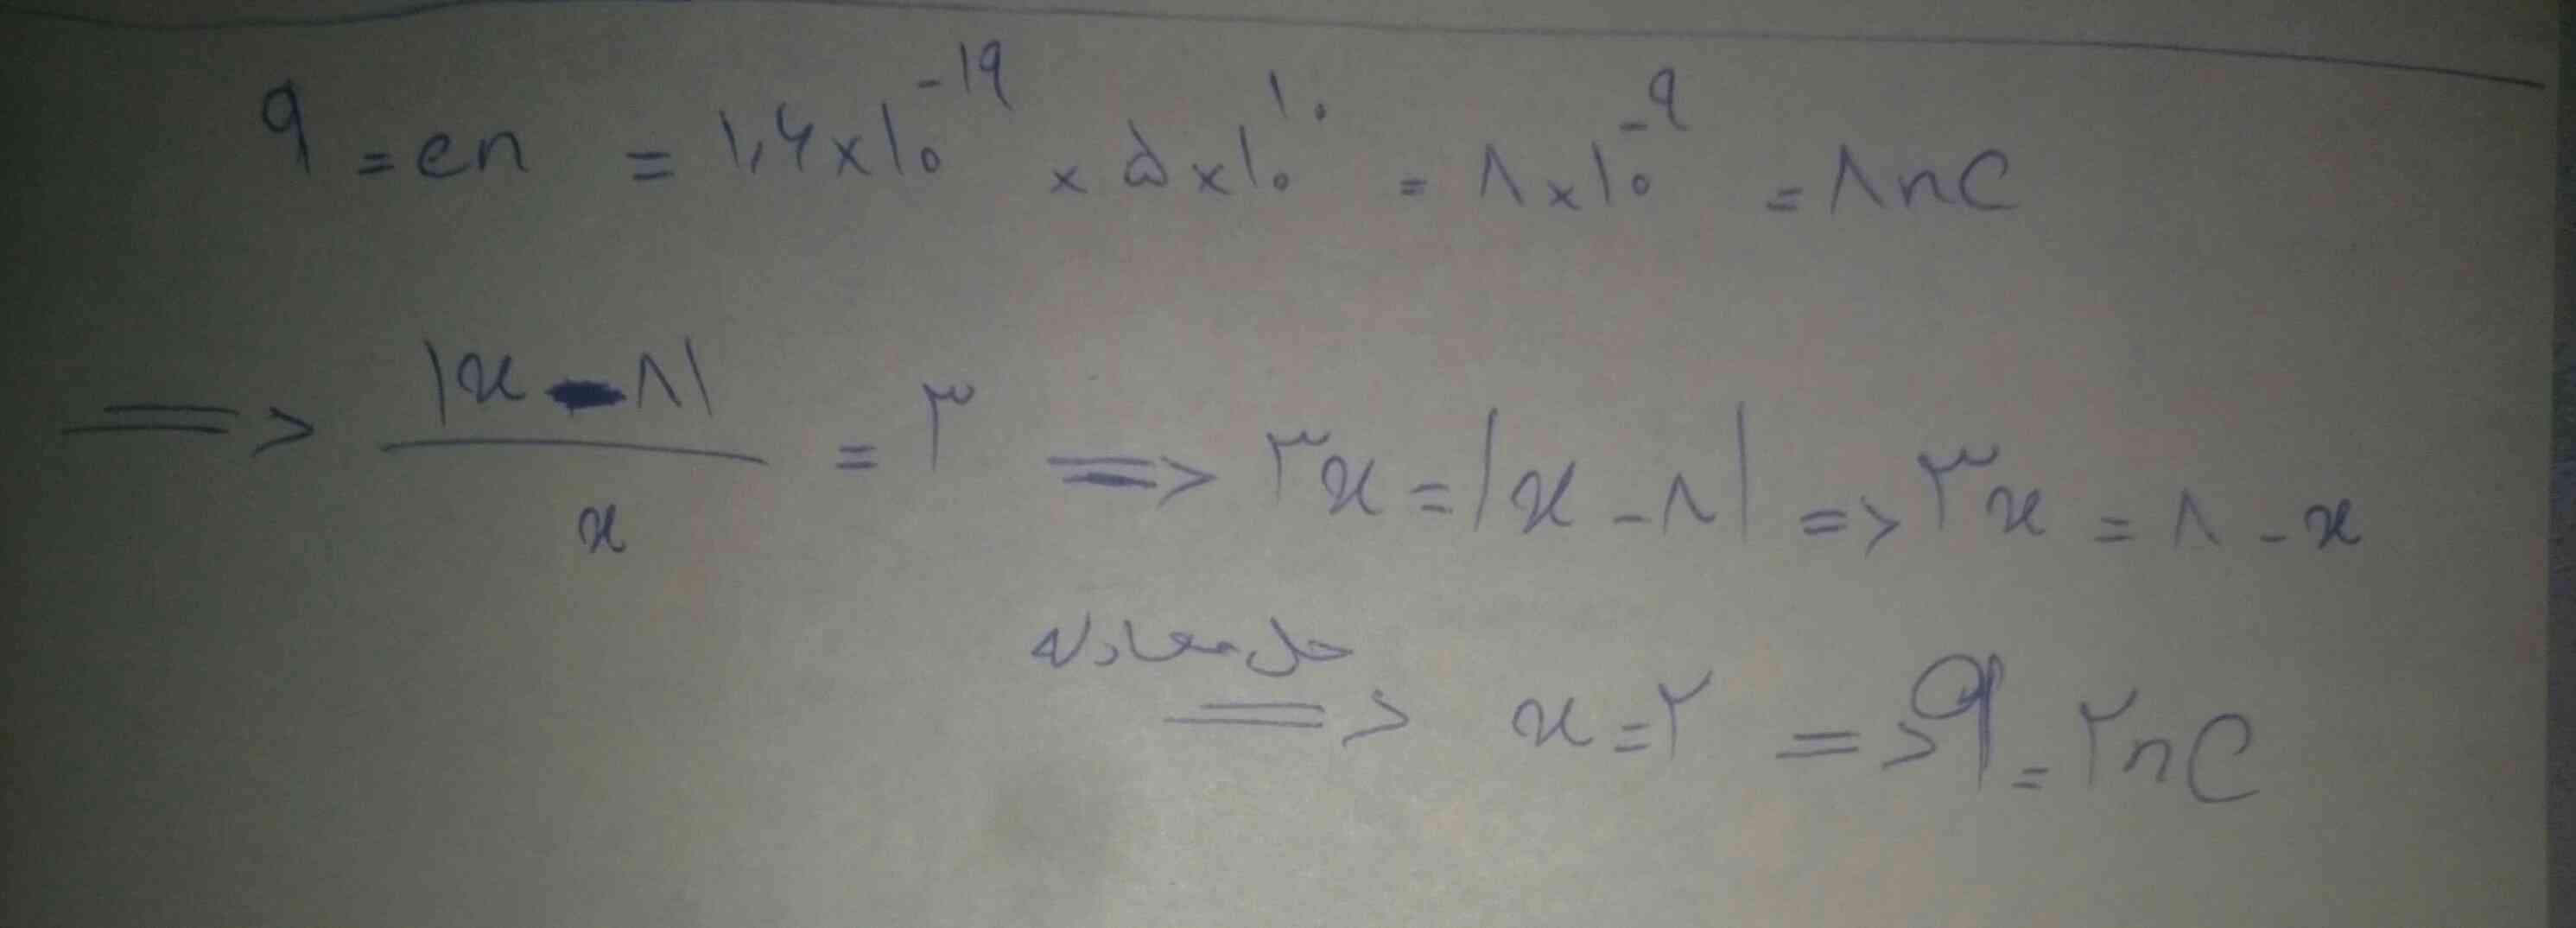 q = en = ۱,۶ × ۱۰^-۱۹ × ۵ × ۱۰^۱۰ = ۸ × ۱۰^-۹ = ۸nC
=> |x - ۸| / x = ۳ => ۳x = |x - ۸| => ۳x = ۸ - x
حل معادله
=> x = ۲ => q = ۲nC